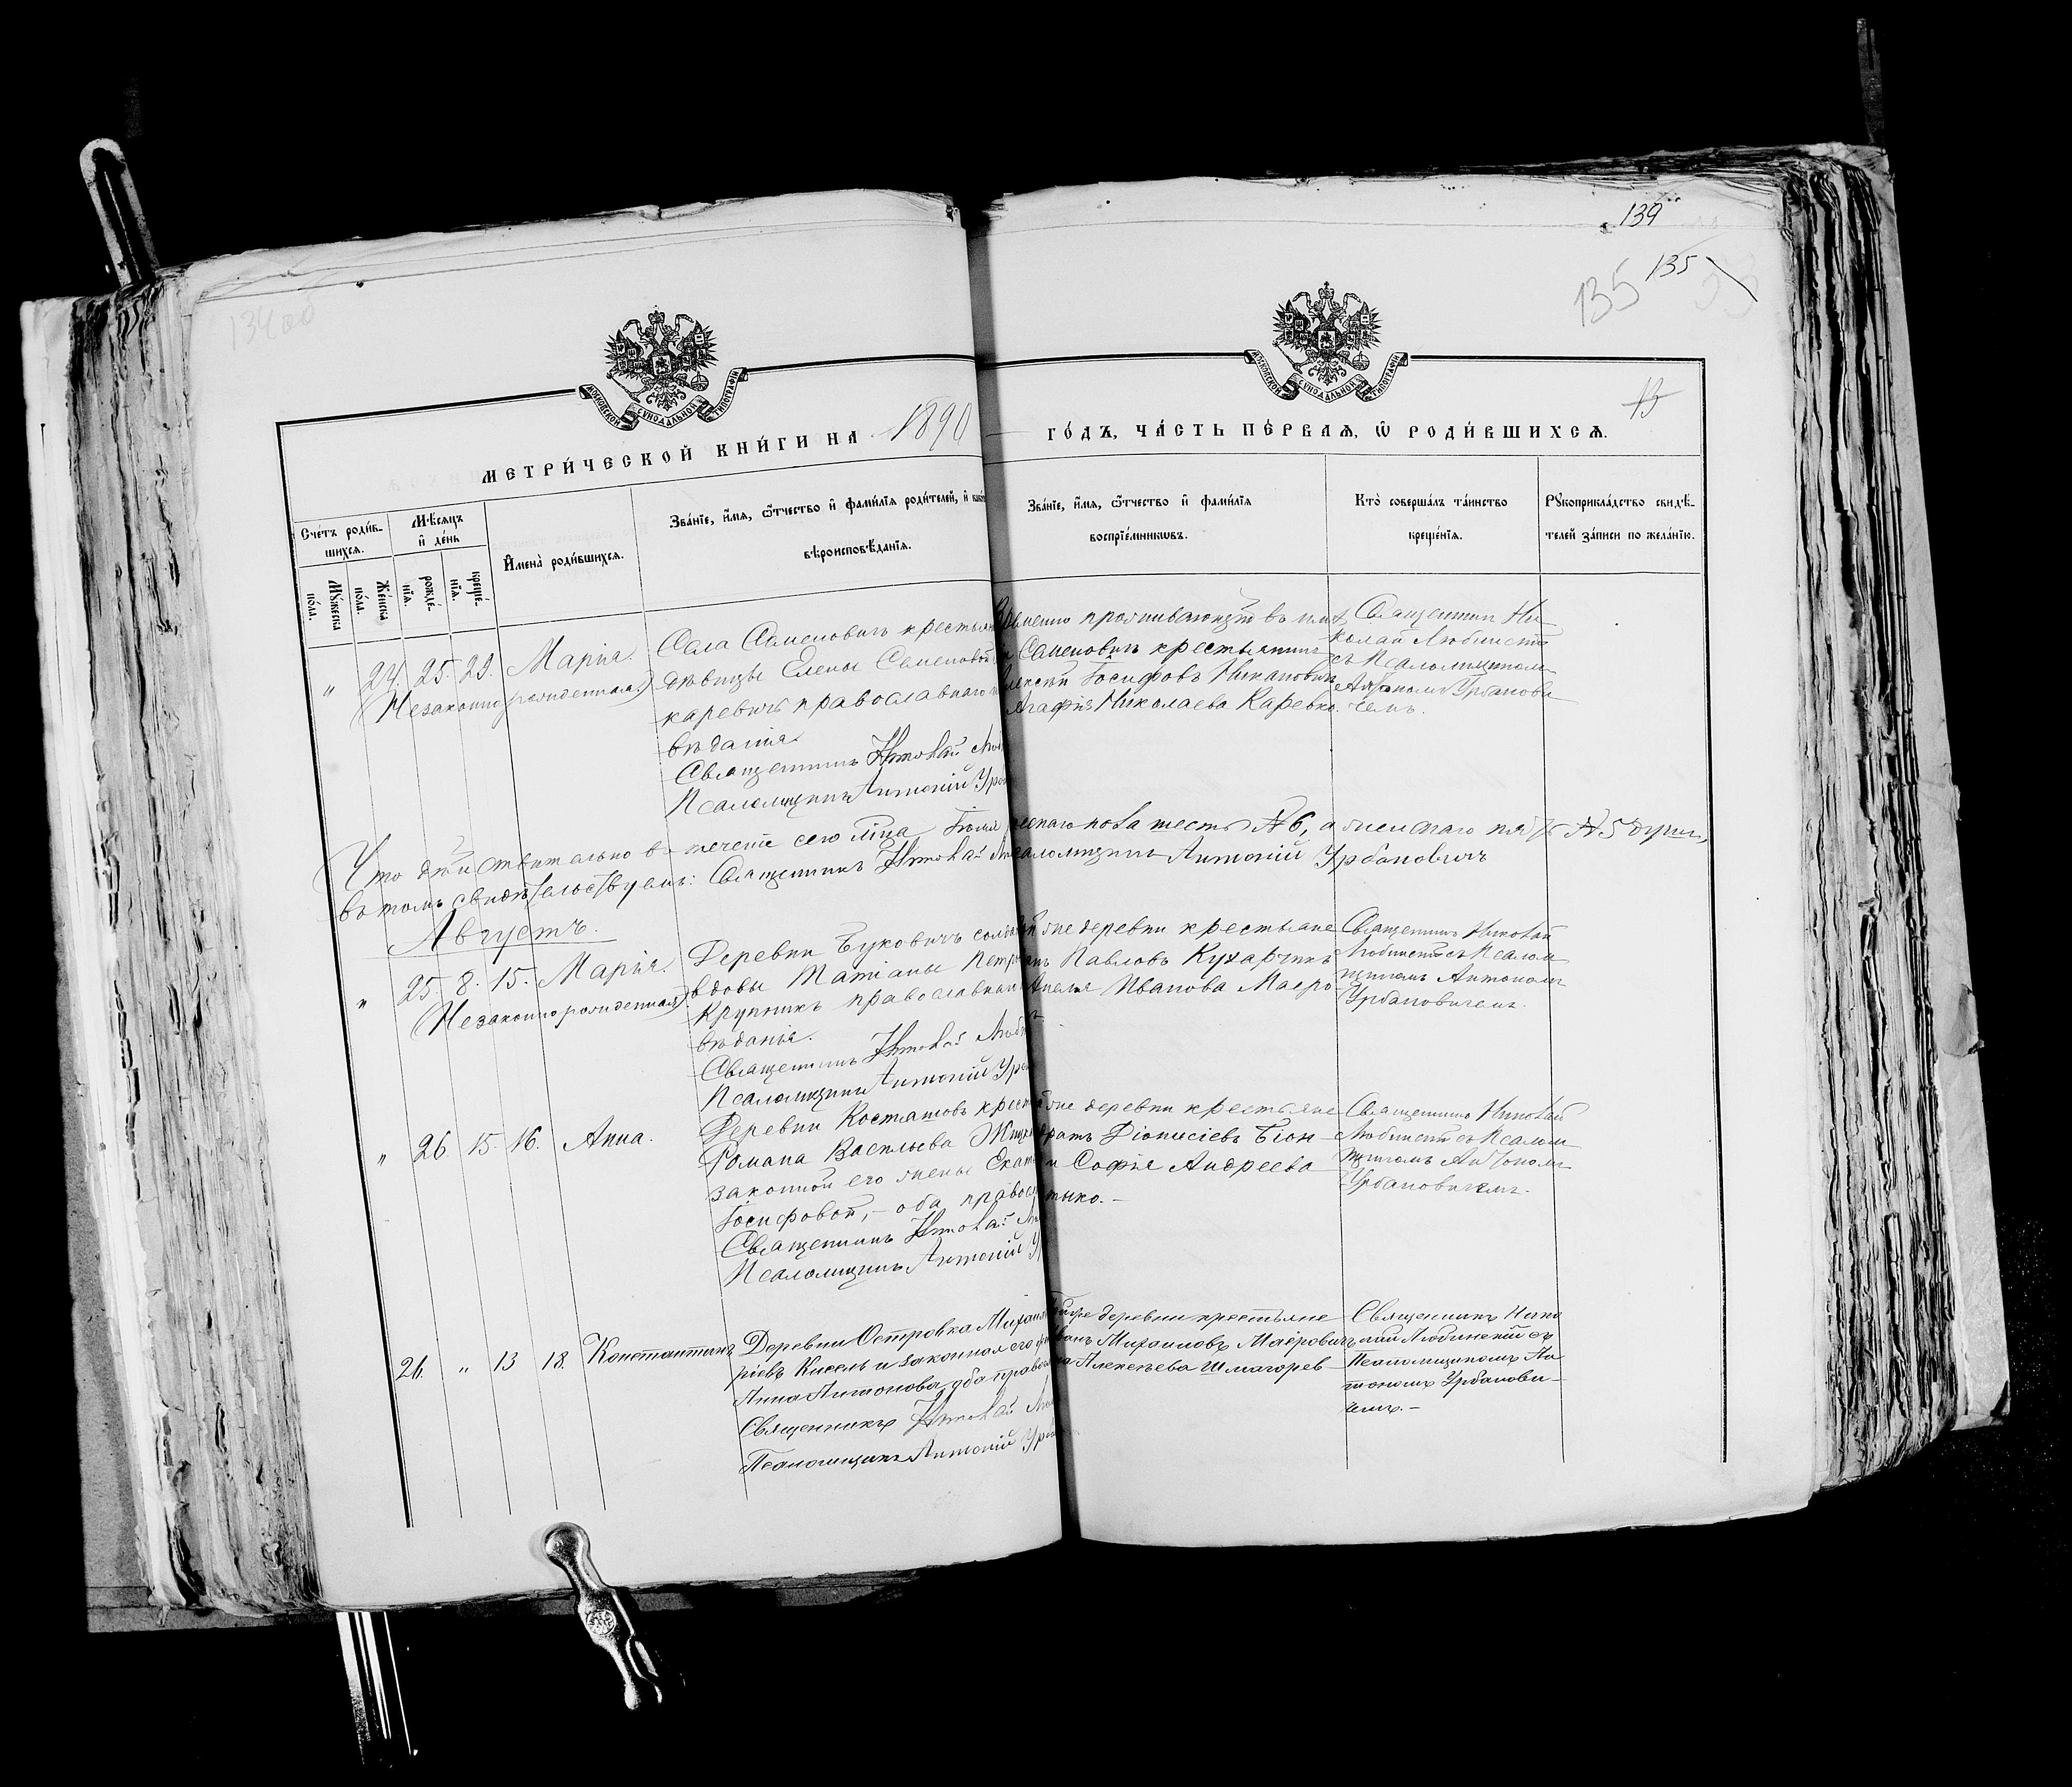 139
135
135
134об
13
МОСКОВСКОЙ СѴНОДАЛЬНОЙ ТИПОГРАФІИ
МОСКОВСКОЙ СѴНОДАЛЬНОЙ ТИПОГРАФІИ
МЕТРИ́ЧЕСКОЙ КНИ́ГИ НА 1890 ГО́ДЪ, ЧА́СТЬ ПЕ́РВАѦ, Ѽ РОДИ́ВШИХСѦ.
Сче́тъ роди́в-
шихсѧ.
Мꙋ́жеска по́ла.
Же́нска по́ла.
Мѣ́сѧцъ и де́нь
рожде́-
нїѧ.
креще́-
нїѧ.
Имена̀ роди́вшихсѧ.
Зва́нїе, и́мѧ, ѻ́тчество и фами́лїѧ роди́телей, и како́
вѣроисповѣ́данїѧ.
Зва́нїе, и́мѧ, ѻ́тчество и фами́лїѧ
воспрїе́мникѡвъ.
Кто̀ соверша́лъ та́инство
креще́нїѧ.
Рꙋкоприкла́дство свидѣ́-
телей за́писи по жела́нїю.
" 24. 25. 29. Марія.
(Незаконнорожденная)
Села Семеновичъ крестьян
дѣвицы Елены Семеновой
каревичъ православнаго
вѣданія.
Священникъ Николай Люб
Псаломщикъ Антоній Урб
проживающій въ
Семеновичъ крестьянинъ
Іосифовъ
Агафія Николаева Каревко.
Священник Ни-
колай Любинскій
съ Псаломщикомъ
Антономъ Урбанови-
чемъ.
Что дѣйствительно въ теченіе сего мѣсяца пола шесть № 6, а женскаго пять № 5 душъ,
въ томъ свидѣтельствуемъ: Священникъ Николай Псаломщикъ Антоній Урбановичъ
Августъ.
" 25. 8. 15. Марія.
(Незаконнорожденная)
Деревни Буковичъ солдат
вдовы Татіаны Петр
Крупникъ православнаго
вѣданія.
Священникъ Николай Любин
Псаломщикъ Антоній Урб
же деревни крестьяне
Павловъ Кухарчикъ
Ивановна Маеро
Священникъ Николай
Любинскій съ Псалом-
щикомъ Антономъ
Урбановичемъ.
" 26. 15. 16. Анна.
Деревни Косташовъ крест
Романа Васильева
законной его жены Екат
Іосифовой, - оба правосл
Священникъ Николай Лю
Псаломщикъ Антоній У
же деревни крестьяне
Діонисіевъ
и Софія Андреева
Священникъ Николай
Любинскій съ Псалом-
щикомъ Антономъ
Урбановичемъ.
26. " 13 18. Константинъ
Деревни Островка Михаил
Кисель и законная его
Анна Антонова, оба право
Священникъ Николай Лю
Псаломщикъ Антоній Урб
деревни крестьяне
Иванъ Михаиловъ Маеровичъ
Алексѣева Шмагорев-
Священникъ Нико
лай Любинскій съ
Псаломщикомъ Ан
тономъ Урбанови-
чемъ. -